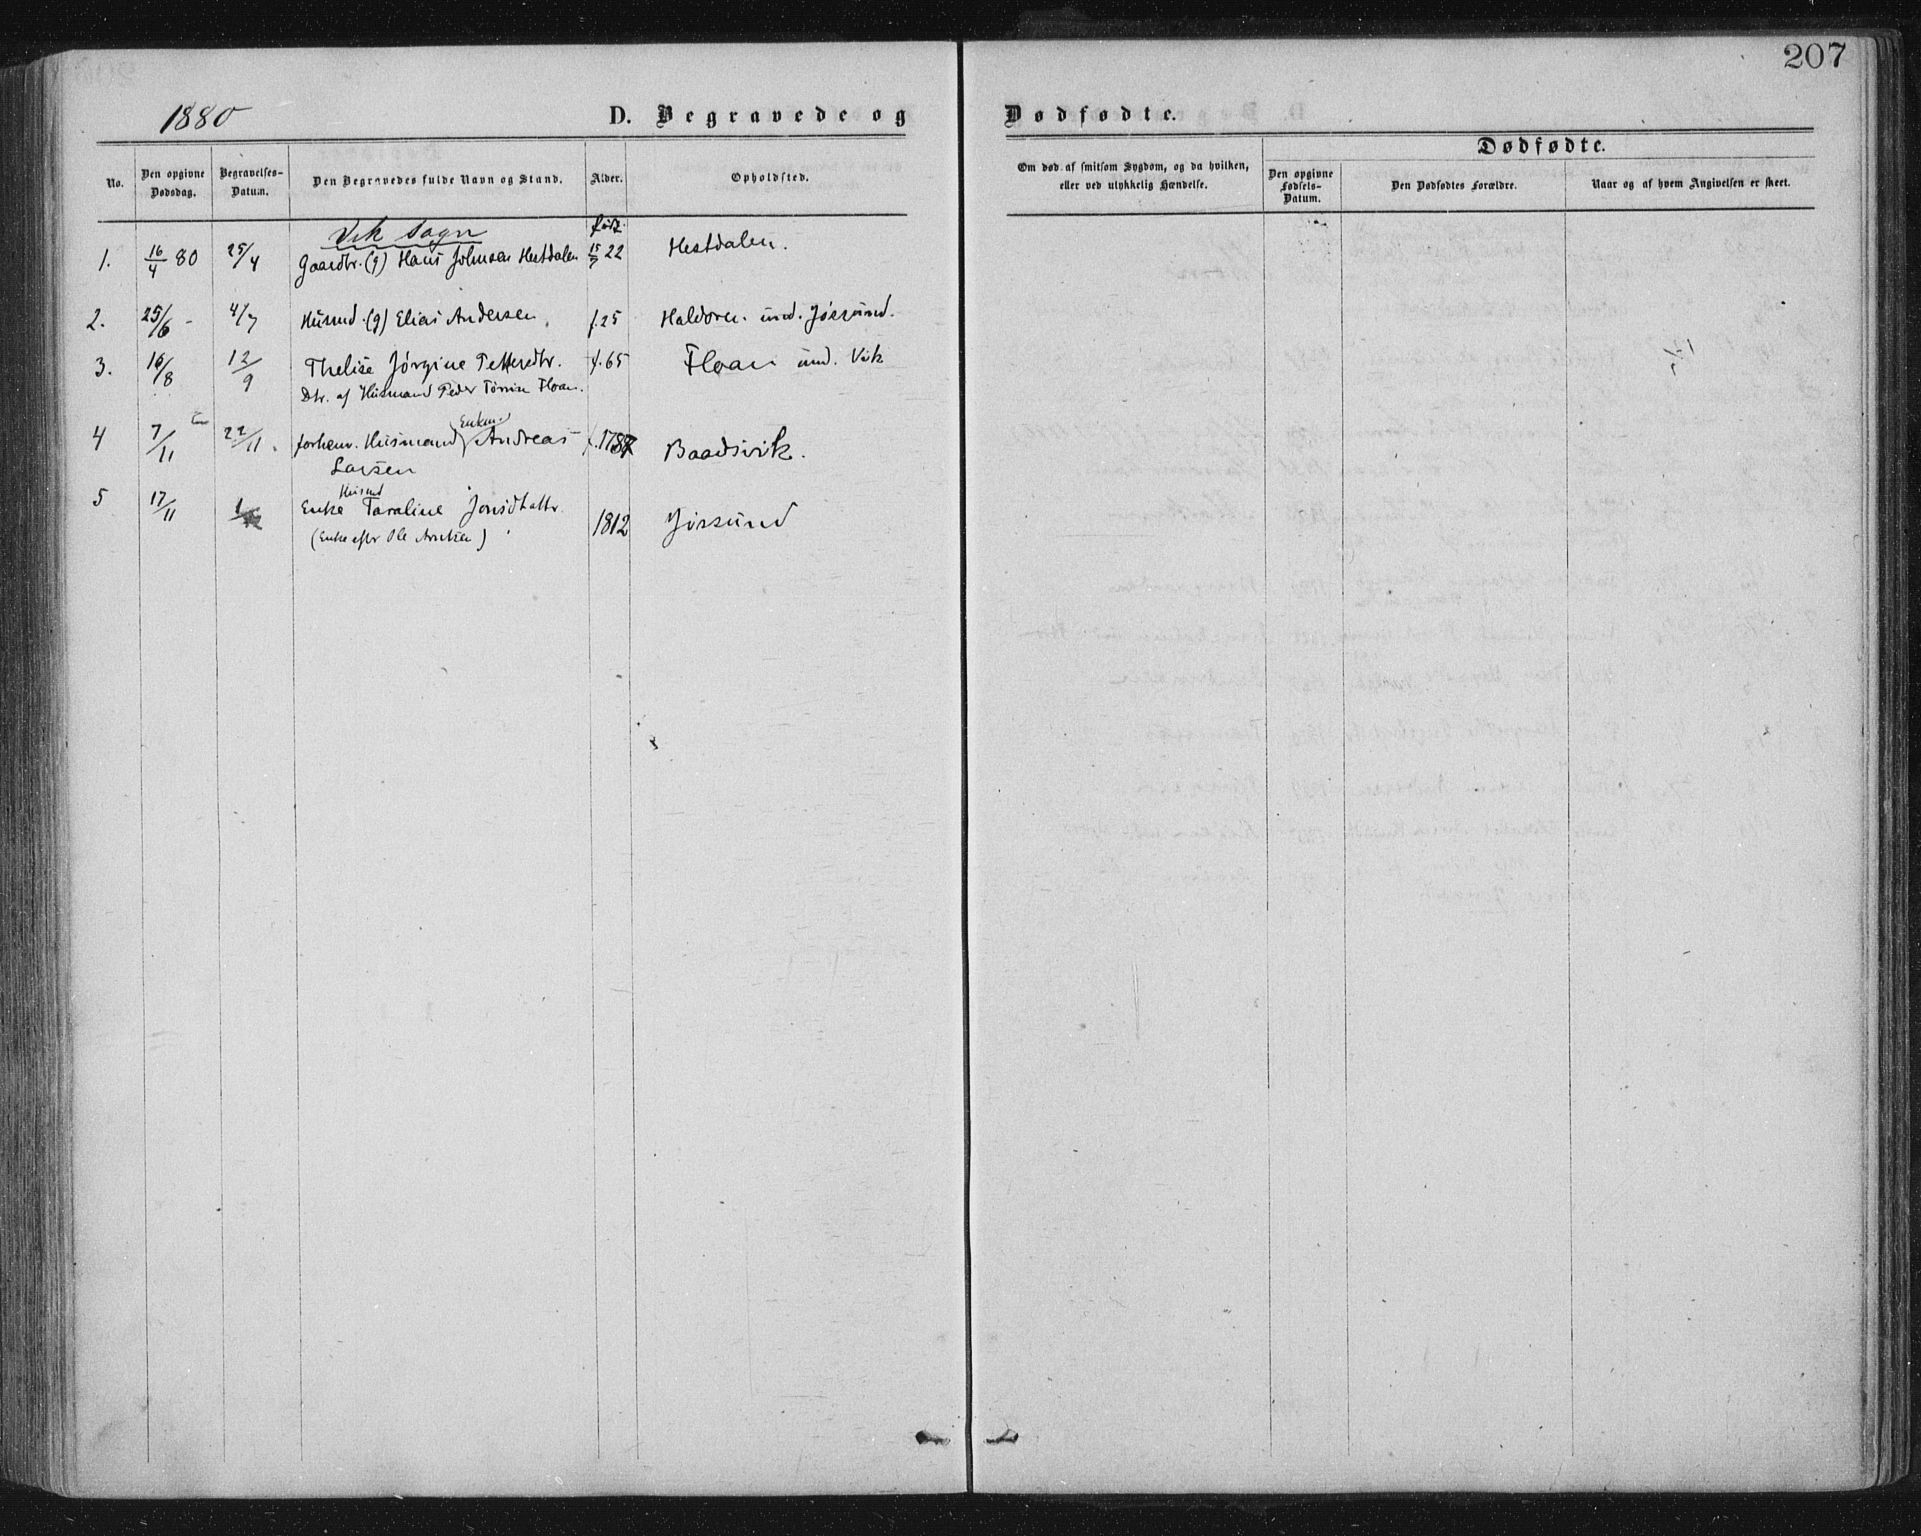 207
1880
D. Begravede og Dødfødte.
No.
Den opgivne Dødsdag.
Begravelses-Datum.
Den Begravedes fulde Navn og Stand.
Alder.
Opholdsted.
Om død af smitsom Sygdom, og da hvilken, eller ved ulykkelig Hændelse.
Dødfødte.
Den opgivne Fødsels-Datum.
Den Dødfødtes Forældre.
Naar og af hvem Angivelsen er skeet.
Vik Sogn
født
1. 16/4 80 25/4 Gaardbr. (g) Hans Johnsen Hestdalen 15/7 22 Hestdalen.
2. 25/6 - 4/7 Husmd. (g) Elias Andersen, f. 25 Haldoren. und. Jøssund.
3. 16/8 12/9 Thelise Jørgine Pettersdtr. f. 65 Floan und. Vik
Dtr. af Husmand Peder Floan.
4 7/11 22/11. forhenv. Husmand Enkem. Andreas f. 1787 Baadsvik.
Larsen
5 17/11 Enke Husmd Taraline Jonsdtattr. 1812 Jøssund
(Enke efter Ole Arntsen)